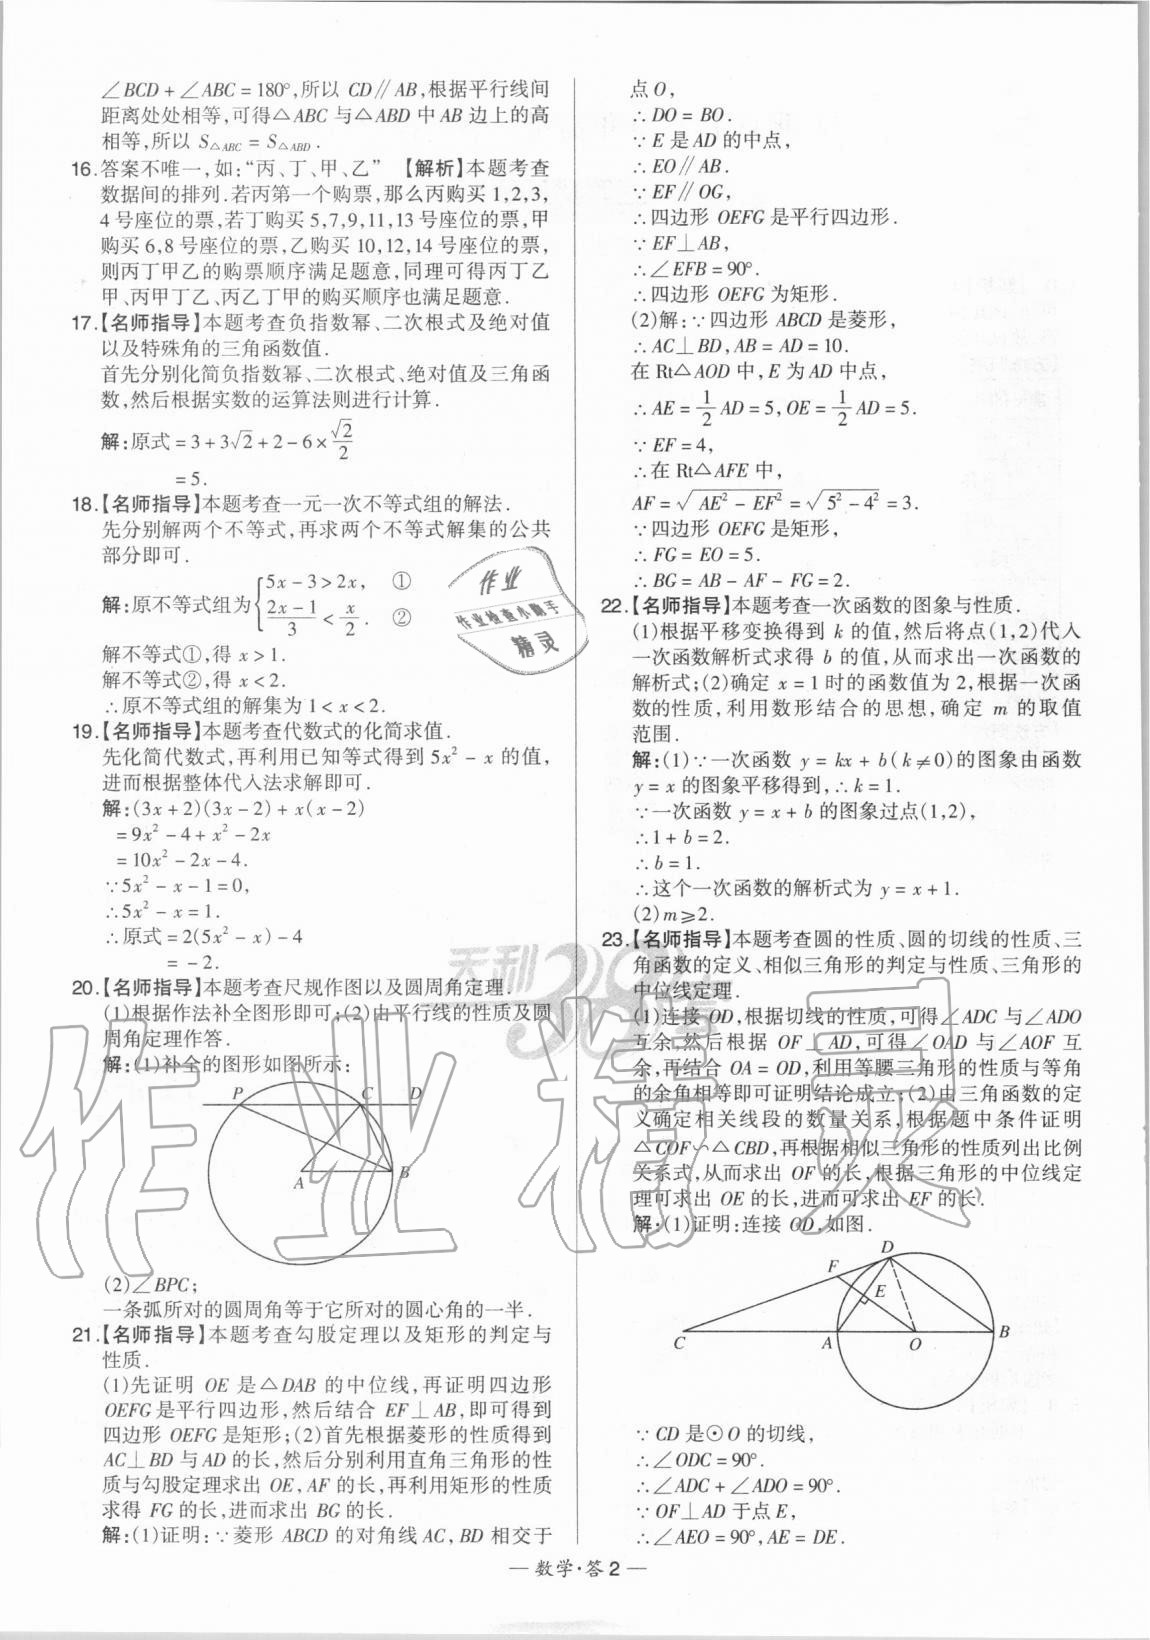 ∠BCD+∠ABC=180°,所以 CD∥AB,根据平行线间
距离处处相等,可得△ABC 与△ABD 中 AB 边上的高
相等,所以 S△ABC = S△ABD.
16.答案不唯一,如:“丙、丁、甲、乙” 【解析】本题考查
数据间的排列.若丙第一个购票,那么丙购买 1,2,3,
4 号座位的票,若丁购买 5,7,9,11,13 号座位的票,甲
购买 6,8 号座位的票,乙购买 10,12,14 号座位的票,
则丙丁甲乙的购票顺序满足题意,同理可得丙丁乙
甲、丙甲丁乙、丙乙丁甲的购买顺序也满足题意.
17.【名师指导】本题考查负指数幂、二次根式及绝对值
以及特殊角的三角函数值.
首先分别化简负指数幂、二次根式、绝对值及三角函
数,然后根据实数的运算法则进行计算.
解:原式=3+3√2+2-6×√2/2
=5.
18.【名师指导】本题考查一元一次不等式组的解法.
先分别解两个不等式,再求两个不等式解集的公共
部分即可.
解:原不等式组为{5x-3>2x, ①
(2x-1)/3<x/2. ②
解不等式①,得 x>1.
解不等式②,得 x<2.
∴原不等式组的解集为 1<x<2.
19.【名师指导】本题考查代数式的化简求值.
先化简代数式,再利用已知等式得到 5x²-x 的值,
进而根据整体代入法求解即可.
解:(3x+2)(3x-2)+x(x-2)
=9x²-4+x²-2x
=10x²-2x-4.
∵5x²-x-1=0,
∴5x²-x=1.
∴原式=2(5x²-x)-4
=-2.
20.【名师指导】本题考查尺规作图以及圆周角定理.
(1)根据作法补全图形即可;(2)由平行线的性质及圆
周角定理作答.
解:(1)补全的图形如图所示:
P C D
A B
(2)∠BPC;
一条弧所对的圆周角等于它所对的圆心角的一半.
21.【名师指导】本题考查勾股定理以及矩形的判定与
性质.
(1)先证明 OE 是△DAB 的中位线,再证明四边形
OEFG 是平行四边形,然后结合 EF⊥AB,即可得到
四边形 OEFG 是矩形;(2)首先根据菱形的性质得到
AC⊥BD 与 AD 的长,然后分别利用直角三角形的性
质与勾股定理求出 OE,AF 的长,再利用矩形的性质
求得 FG 的长,进而求出 BG 的长.
解:(1)证明:∵菱形 ABCD 的对角线 AC,BD 相交于
点 O,
∴DO=BO.
∵E 是 AD 的中点,
∴EO∥AB.
∵EF∥OG,
∴四边形 OEFG 是平行四边形.
∵EF⊥AB,
∴∠EFB=90°.
∴四边形 OEFG 为矩形.
(2)解:∵四边形 ABCD 是菱形,
∴AC⊥BD,AB=AD=10.
在 Rt△AOD 中,E 为 AD 中点,
∴AE=1/2 AD=5,OE=1/2 AD=5.
∵EF=4,
∴在 Rt△AFE 中,
AF=√(AE²-EF²)=√(5²-4²)=3.
∵四边形 OEFG 是矩形,
∴FG=EO=5.
∴BG=AB-AF-FG=2.
22.【名师指导】本题考查一次函数的图象与性质.
(1)根据平移变换得到 k 的值,然后将点(1,2)代入
一次函数解析式求得 b 的值,从而求出一次函数的
解析式;(2)确定 x=1 时的函数值为 2,根据一次函
数的性质,利用数形结合的思想,确定 m 的取值
范围.
解:(1)∵一次函数 y=kx+b(k≠0)的图象由函数
y=x 的图象平移得到,∴k=1.
∵一次函数 y=x+b 的图象过点(1,2),
∴1+b=2.
∴b=1.
∴这个一次函数的解析式为 y=x+1.
(2)m≥2.
23.【名师指导】本题考查圆的性质、圆的切线的性质、三
角函数的定义、相似三角形的判定与性质、三角形的
中位线定理.
(1)连接 OD,根据切线的性质,可得∠ADC 与∠ADO
互余,然后根据 OF⊥AD,可得∠OAD 与∠AOF 互
余,再结合 OA=OD,利用等腰三角形的性质与等角
的余角相等即可证明结论成立;(2)由三角函数的定
义确定相关线段的数量关系,根据题中条件证明
△COF∽△CBD,再根据相似三角形的性质列出比例
关系式,从而求出 OF 的长,根据三角形的中位线定
理可求出 OE 的长,进而可求出 EF 的长.
解:(1)证明:连接 OD,如图.
D
F
E
C A O B
∵CD 是⊙O 的切线,
∴∠ODC=90°.
∴∠ADC+∠ADO=90°.
∵OF⊥AD 于点 E,
∴∠AEO=90°,AE=DE.
— 数学·答 2 —
作业
作业检查小助手
精灵
天利38套
作业精灵